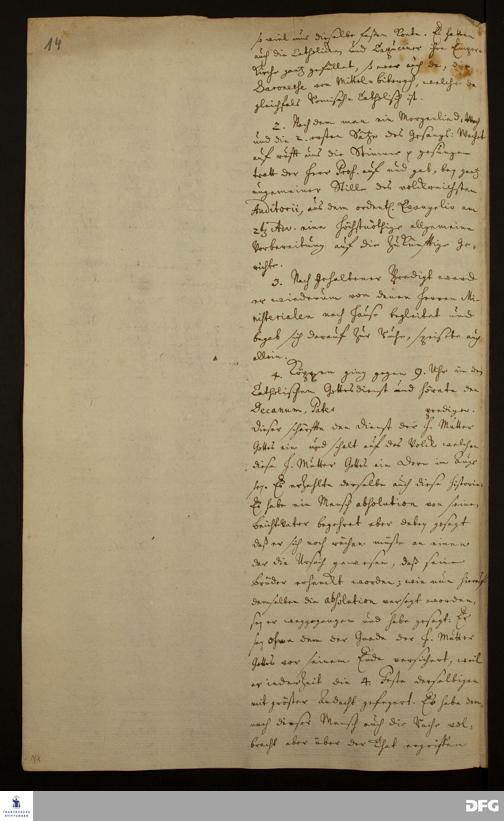 14
so viel uns dieselbe fassen konte. Es hatten
auch die Catholicken und Capuciner ihre
Kirche gantz gefüllet, so war auch da, die
Baronesse von Mittelnbiberach, welche da
gleichfals Römisch Catholisch ist.
2. Nachdem man ein Morgenlied,
und die 2. ersten Sätze des Gesangs: Wachet
auf rufft uns die Stimme p gesungen
tratt der Herr Prof. auf und gab, bey gantz
ungemeiner Stille des volckreichsten
Auditorii, aus dem ordentl. Evangelio am
2ten Adv. eine höchstnöthige allgemeine
Vorbereitung auf die Zukünfftige Ge-
richte.
3. Nach gehaltener Predigt ward
er wiederum von denen Herren Mi-
nisterialen nach Hause begleitet und
begab sich darauf zur Ruhe, speisete auch
allein.
4. Köppen ging gegen 9. Uhr in den
Catholischen Gottesdienst und hörete den
Decanum, Pater predigen.
Dieser schärffte den Dienst der H. Mutter
Gottes ein und schalt auf das Volck welchen
diese H. Mutter Gottes ein Dorn im Auge
sey. Er erzehlte derselbe auch diese Historie:
Es habe ein Mensch absolution von seinem
Beichtvater begehret aber dabey gesagt
daß er sich noch rächen müste an einem
der die Ursach gewesen, daß seine
Brüder erhenckt worden; wie nun hierauf
demselben die absolution versagt worden,
sey er weggegangen und habe gesagt: Er
sey ohne dem der Gnade der H. Mutter
Gottes vor seinem Ende versichert, weil
er iederzeit die 4. Feste derselbigen
mit gröster Andacht gefeyert. Es habe dem-
nach dieser Mensch auch die Rache vol-
bracht aber über der That ergriffen
FRANCKESCHE STIFTUNGEN
DFG